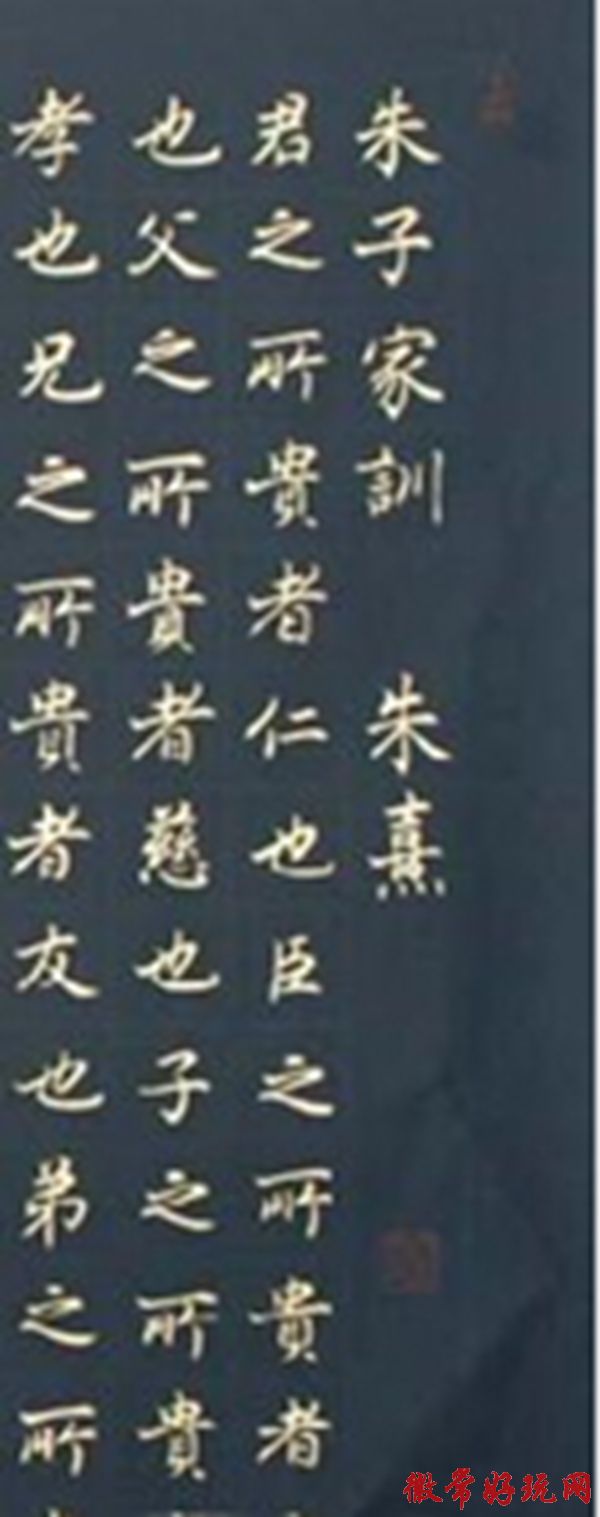 朱子家訓 朱熹
君之所貴者仁也臣之所貴者
也父之所貴者慈也子之所貴
孝也兄之所貴者友也弟之所
徽常好玩网